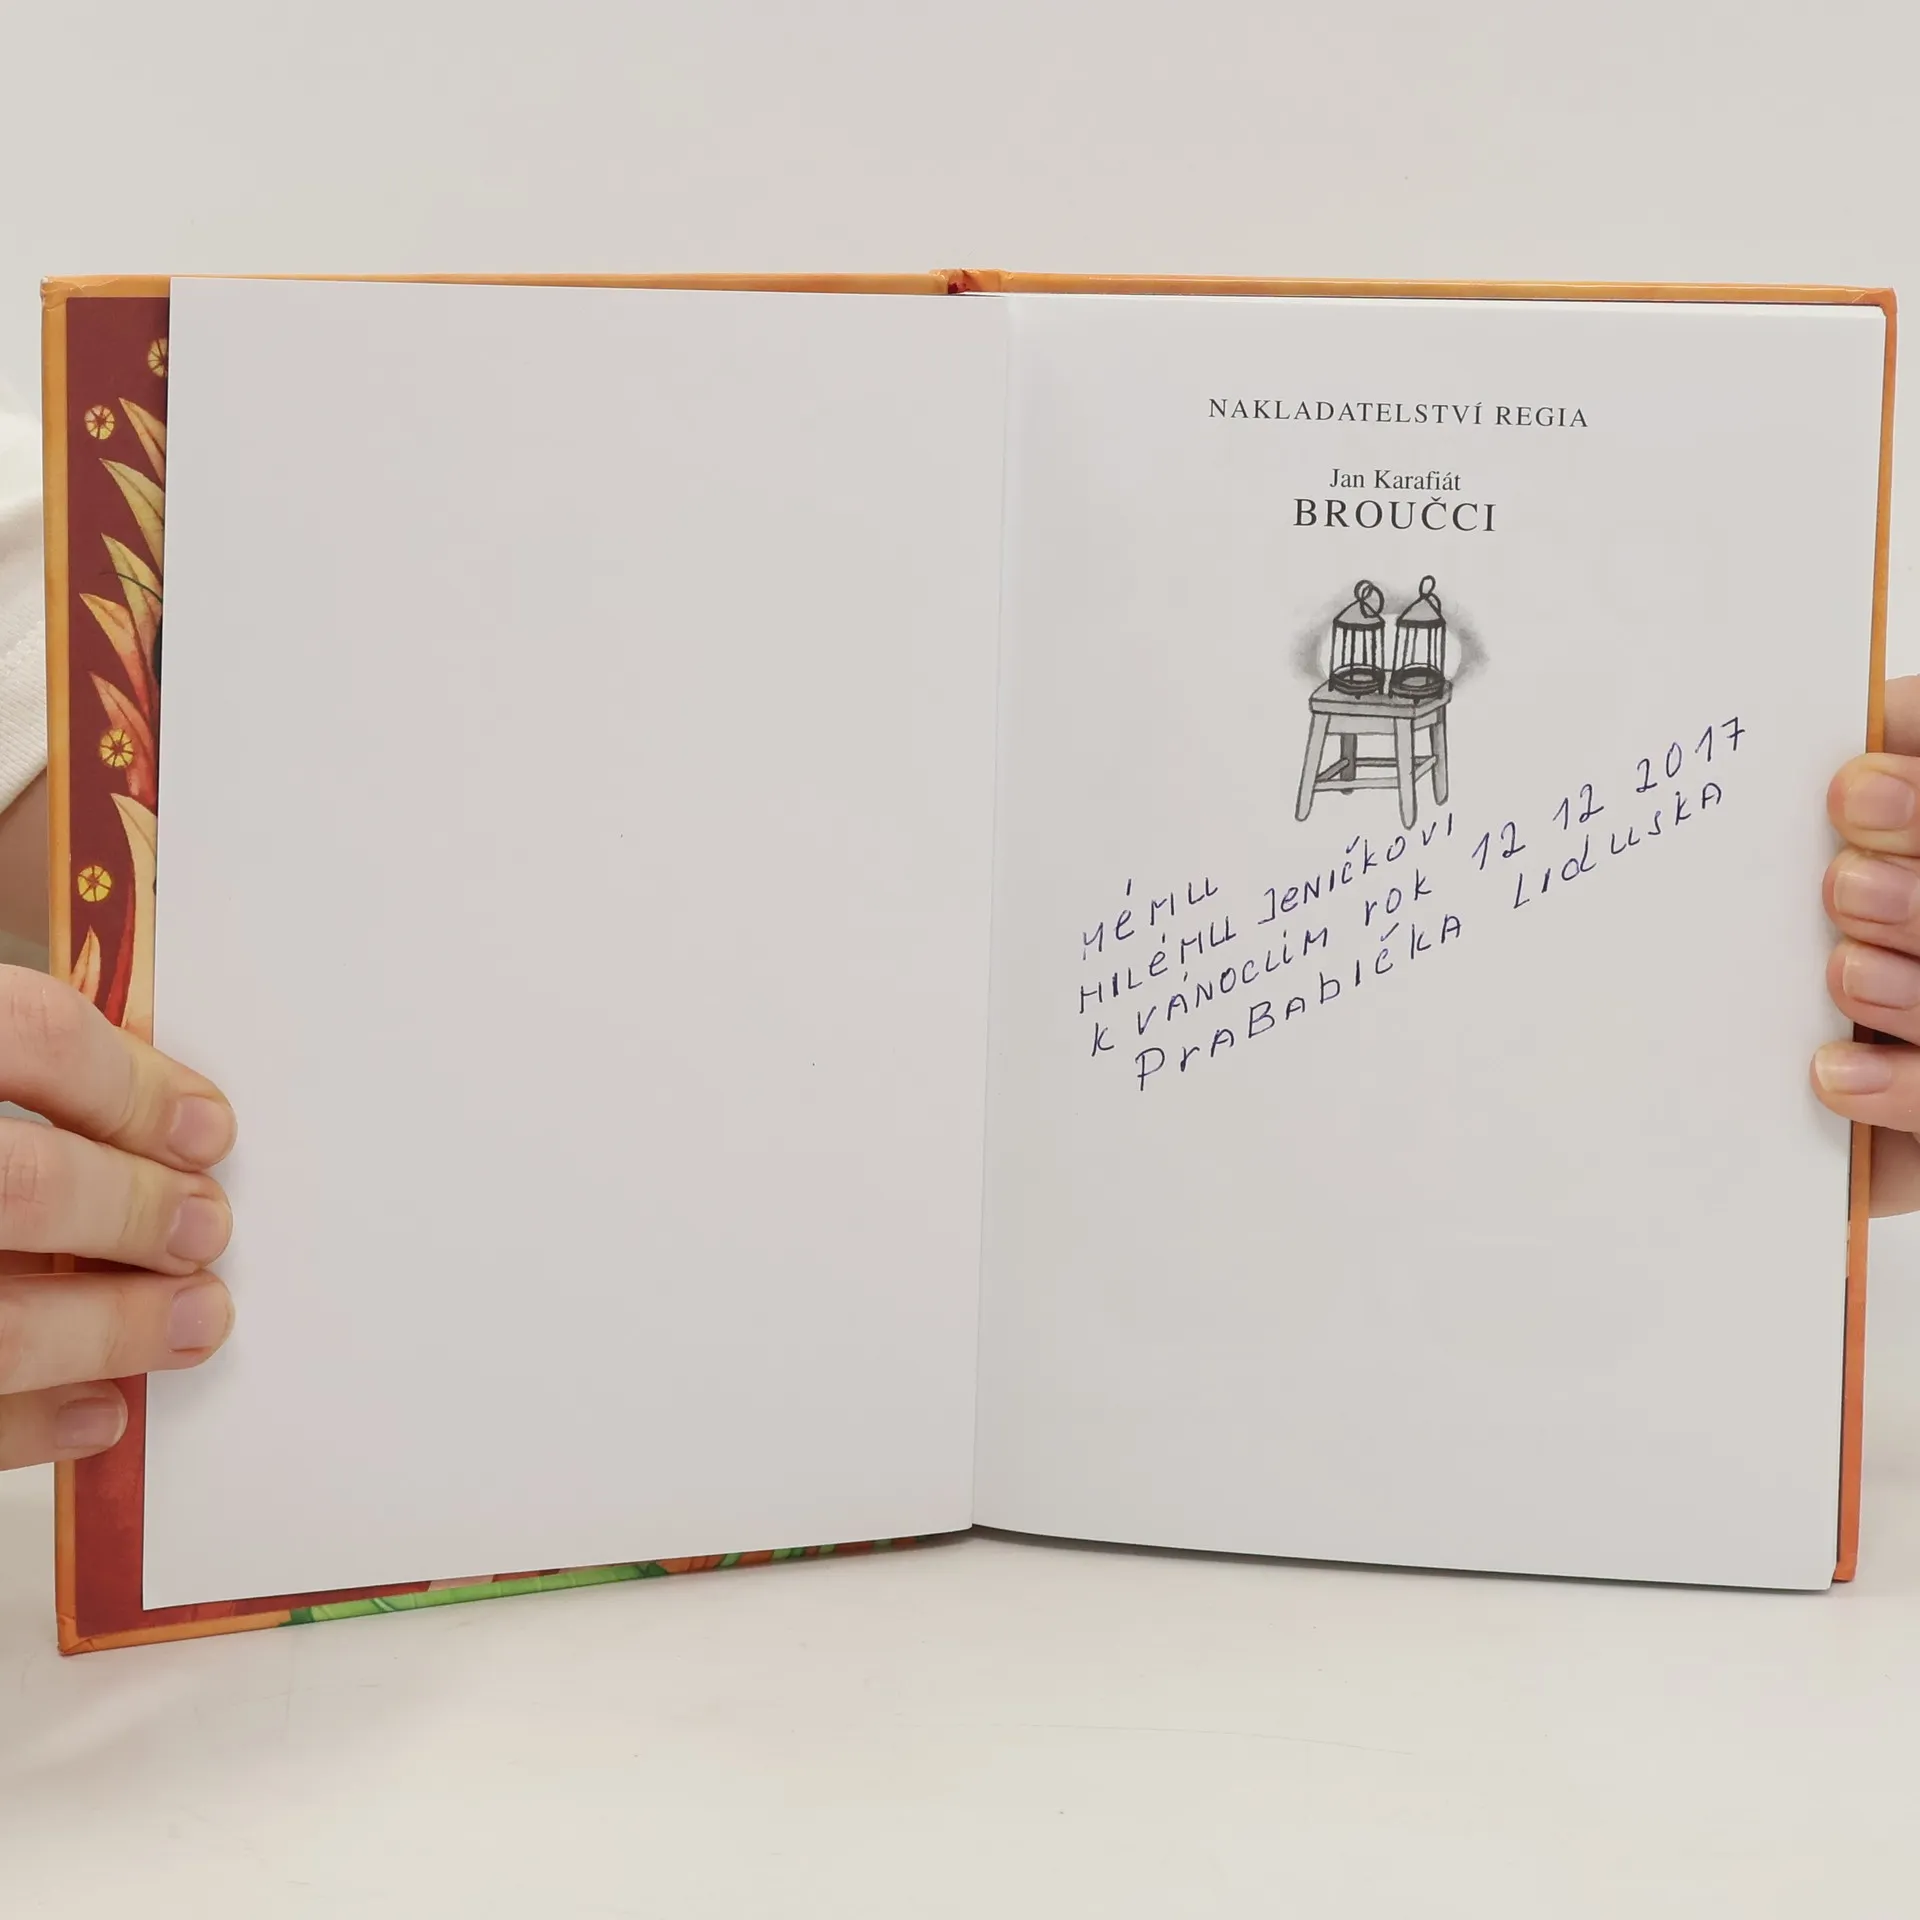 NAKLADATELSTVÍ REGIA
Jan Karafiát
BROUČCI
MÉMU
MILÉMU JENIČKOVI
K VÁNOCŮM ROK 12 12 2017
PRABABIČKA LIDUSKA